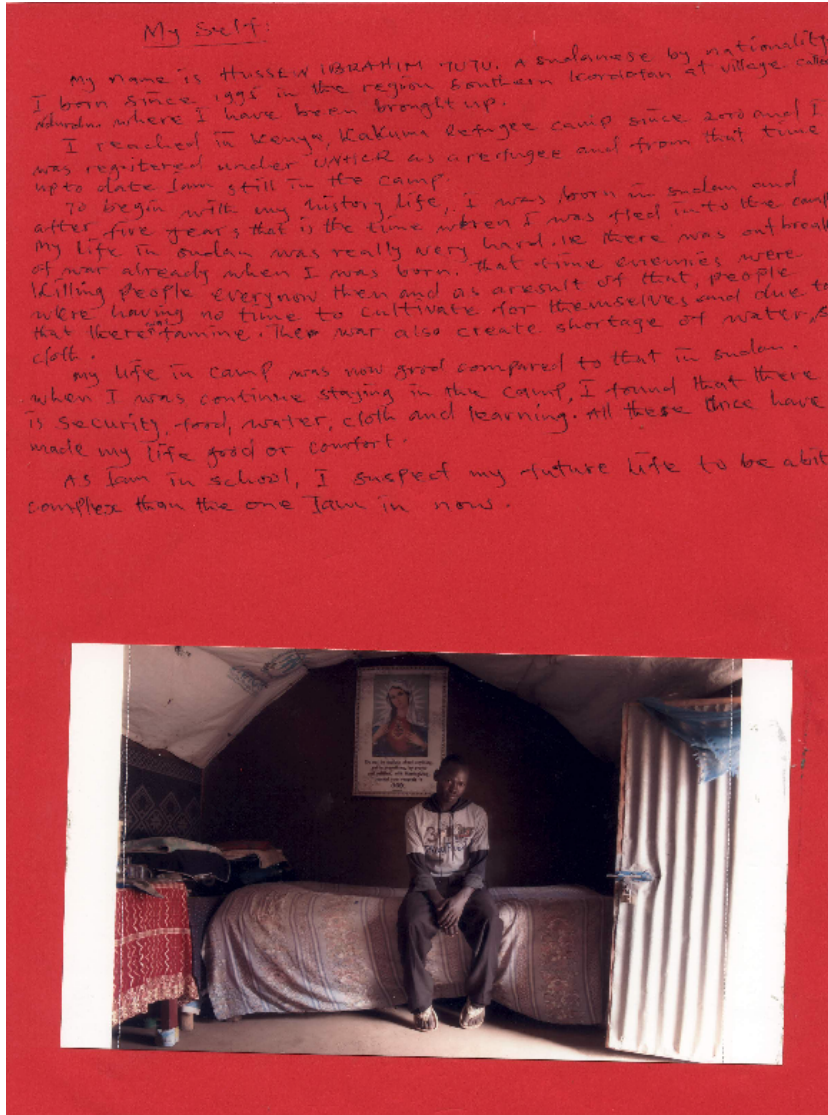 My Self:
My name is HUSSEIN IBRAHIM TUTU. A sudanese by nationality
I born since 1995 in the region Southern Kordofan at village called
where I have been brought up.
I reached in Kenya, Kakuma Refugee camp since 2000 and I
was registered under UNHCR as a refugee and from that time
up to date Iam still in the camp.
To begin with my history life, I was born in sudan and
after five years that is the time when I was fled in to the camp
My life in sudan was really very hard. ie there was outbreak
of war already when I was born. That time enemies were
killing people everynow then and as aresult of that, people
were having no time to cultivate for themselves and due to
that there was famine. Then war also create shortage of water,
cloth.
My life in camp was now good compared to that in sudan.
when I was continue staying in the camp, I found that there
is security, food, water, cloth and learning. All these have
made my life good or comfort.
As Iam in school, I suspect my future life to be abit
complex than the one Iam in now.